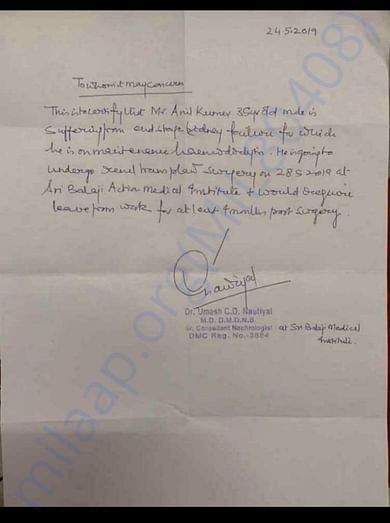 24.5.2019
To whom it may concern
This is to certify that Mr Anil Kumar 35 yr old male is
suffering from end stage kidney failure for which
he is on maintenance haemodialysis. He is going to
undergo renal transplant surgery on 28.5.2019 at
Sri Balaji Action Medical Institute & would require
leave from work for at least 4 months post surgery.
Dr. Umesh C.D. Nautiyal
M.D. D.M.D.N.B.
Sr. Consultant Nephrologist at Sri Balaji Medical
DMC Reg. No.-3864 Institute.
milaap.org